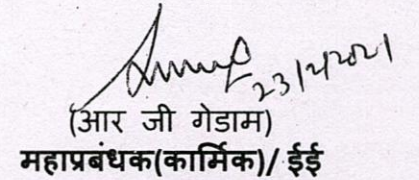 23/2/2021
(आर जी गेडाम)
महाप्रबंधक(कार्मिक)/ ईई